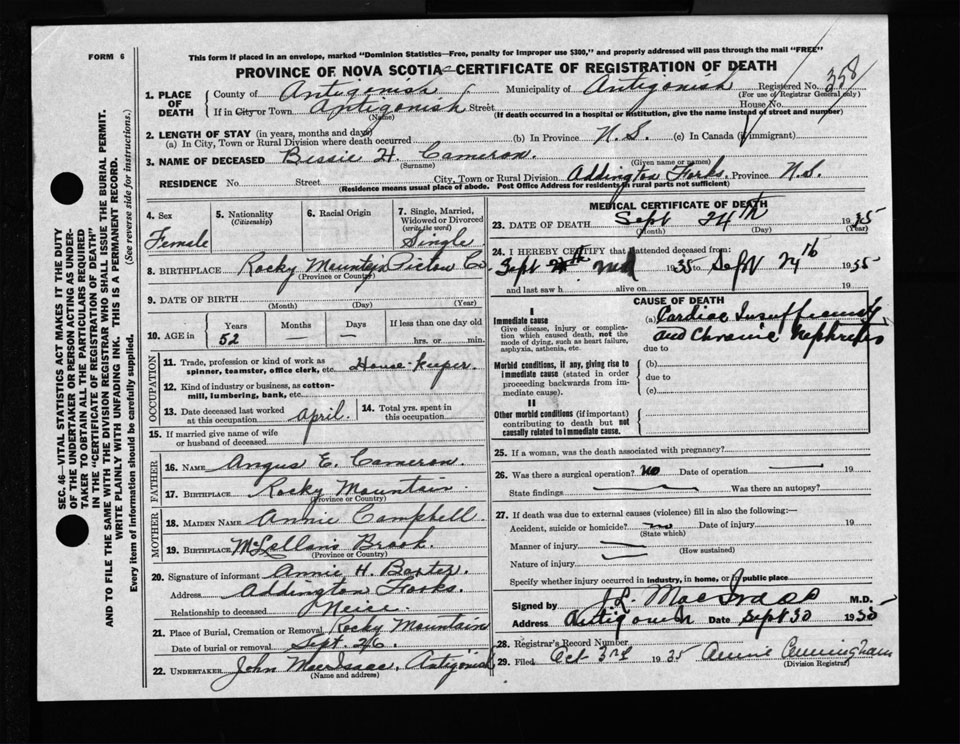 FORM 6
This form if placed in an envelope, marked "Dominion Statistics—Free, penalty for improper use $300," and properly addressed will pass through the mail "FREE"
PROVINCE OF NOVA SCOTIA—CERTIFICATE OF REGISTRATION OF DEATH
SEC. 46—VITAL STATISTICS ACT MAKES IT THE DUTY
OF THE UNDERTAKER OR PERSON ACTING AS UNDER-
TAKER TO OBTAIN ALL THE PARTICULARS REQUIRED
IN THE "CERTIFICATE OF REGISTRATION OF DEATH"
AND TO FILE THE SAME WITH THE DIVISION REGISTRAR WHO SHALL ISSUE THE BURIAL PERMIT.
WRITE PLAINLY WITH UNFADING INK. THIS IS A PERMANENT RECORD.
Every item of information should be carefully supplied. (See reverse side for instructions.)
1. PLACE OF DEATH County of Antigonish Municipality of Antigonish Registered No. 358
(For use of Registrar General only)
If in City or Town Antigonish Street House No.
(Name) (If death occurred in a hospital or institution, give the name instead of street and number)
2. LENGTH OF STAY (in years, months and days)
(a) In City, Town or Rural Division where death occurred (b) In Province N.S. (c) In Canada (if immigrant)
3. NAME OF DECEASED Bessie H. Cameron.
(Surname) (Given name or names)
RESIDENCE No. Street City, Town or Rural Division Addington Forks. Province N.S.
(Residence means usual place of abode. Post Office Address for residents in rural parts not sufficient)
4. Sex Female
5. Nationality (Citizenship)
6. Racial Origin
7. Single, Married, Widowed or Divorced (write the word) Single
8. BIRTHPLACE Rocky Mountain Pictou Co
(Province or Country)
9. DATE OF BIRTH
(Month) (Day) (Year)
10. AGE in Years Months Days If less than one day old
52 — — hrs. or min.
OCCUPATION
11. Trade, profession or kind of work as spinner, teamster, office clerk, etc. House-Keeper.
12. Kind of industry or business, as cotton-mill, lumbering, bank, etc.
13. Date deceased last worked at this occupation April.
14. Total yrs. spent in this occupation
15. If married give name of wife or husband of deceased
FATHER
16. NAME Angus E. Cameron.
17. BIRTHPLACE Rocky Mountain.
(Province or Country)
MOTHER
18. MAIDEN NAME Annie Campbell
19. BIRTHPLACE McLellans Brook.
(Province or Country)
20. Signature of informant Annie H. Baxter.
Address Addington Forks.
Relationship to deceased Neice.
21. Place of Burial, Cremation or Removal Rocky Mountain
Date of burial or removal Sept. 26.
22. UNDERTAKER John MacIsaac, Antigonish
(Name and address)
MEDICAL CERTIFICATE OF DEATH
23. DATE OF DEATH Sept 24th 1935
(Month) (Day) (Year)
24. I HEREBY CERTIFY that I attended deceased from:
Sept 1935 to Sept 24th 1935
and last saw h alive on 19
CAUSE OF DEATH
I
Immediate cause
Give disease, injury or complication which caused death, not the mode of dying, such as heart failure, asphyxia, asthenia, etc.
(a) Cardiac Insufficiency
and Chronic Nephritis
due to
Morbid conditions, if any, giving rise to immediate cause (stated in order proceeding backwards from immediate cause).
(b)
due to
(c)
II
Other morbid conditions (if important) contributing to death but not causally related to immediate cause.
25. If a woman, was the death associated with pregnancy?
26. Was there a surgical operation? No Date of operation 19
State findings Was there an autopsy?
27. If death was due to external causes (violence) fill in also the following:—
Accident, suicide or homicide? no Date of injury 19
(State which)
Manner of injury
(How sustained)
Nature of injury
Specify whether injury occurred in industry, in home, or in public place
Signed by M.D.
Address Antigonish Date Sept 30 1935
28. Registrar's Record Number
29. Filed Oct 3rd 1935 Annie Cunningham
(Division Registrar)